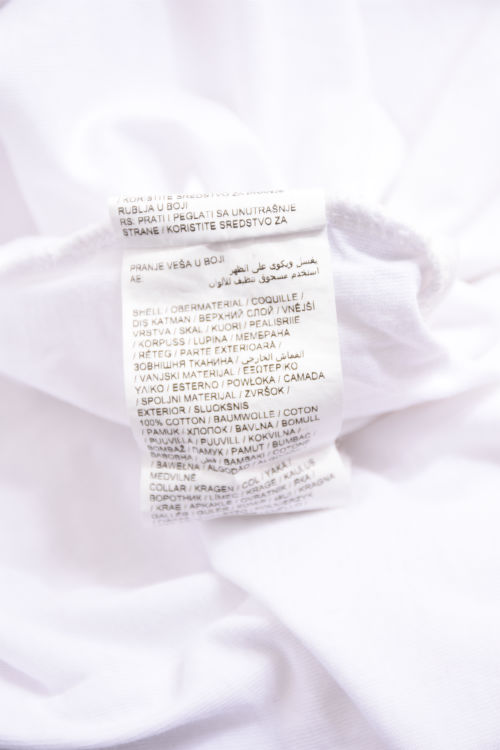 / KORISTITE SREDSTVO ZA PRANJE
RUBLJA U BOJI
RS: PRATI I PEGLATI SA UNUTRAŠNJE
STRANE / KORISTITE SREDSTVO ZA
PRANJE VEŠA U BOJI
AE:
يغسل ويكوى على الظهر
استخدم مسحوق تنظيف للألوان
SHELL / OBERMATERIAL / COQUILLE /
DIŞ KATMAN / ВЕРХНИЙ СЛОЙ / VNĚJŠÍ
VRSTVA / SKAL / KUORI / PEALISRIIE
/ KORPUSS / LUPINA / МЕМБРАНА
/ RÉTEG / PARTE EXTERIOARĂ /
ЗОВНІШНЯ ТКАНИНА / القماش الخارجي
/ VANJSKI MATERIJAL / ΕΞΩΤΕΡΙΚΟ
ΥΛΙΚΟ / ESTERNO / POWŁOKA / CAMADA
/ SPOLJNI MATERIJAL / ZVRŠOK /
EXTERIOR / SLUOKSNIS
100% COTTON / BAUMWOLLE / COTON
/ PAMUK / ХЛОПОК / BAVLNA / BOMULL
/ PUUVILLA / PUUVILL / KOKVILNA /
BOMBAŽ / ПАМУК / PAMUT / BUMBAC /
БАВОВНА / قطن / ΒΑΜΒΑΚΙ / COTONE
/ BAWEŁNA / ALGODÃO / ALGODÓN /
MEDVILNĖ
COLLAR / KRAGEN / COL / YAKA /
ВОРОТНИК / LÍMEC / KRAGE / KAULUS
/ KRAE / APKAKLE / OVRATNIK / ЯКА /
GALLÉR / GULER /